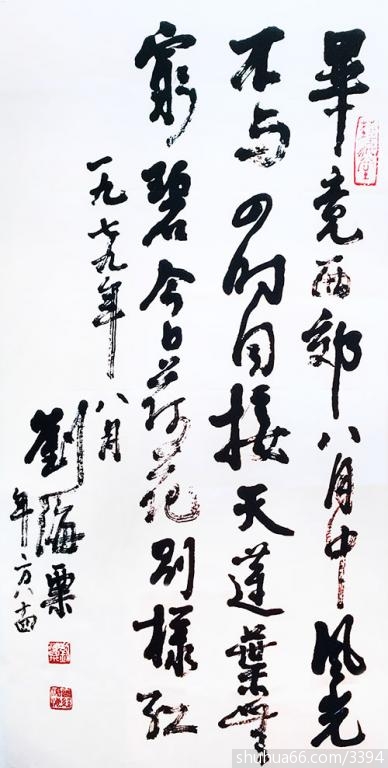 畢竟西郊八月中風光
不与四时同接天蓮葉無
窮碧今日荷花別樣红
一九七九年八月
劉海粟
年方八十四
shuhua66.com/3394